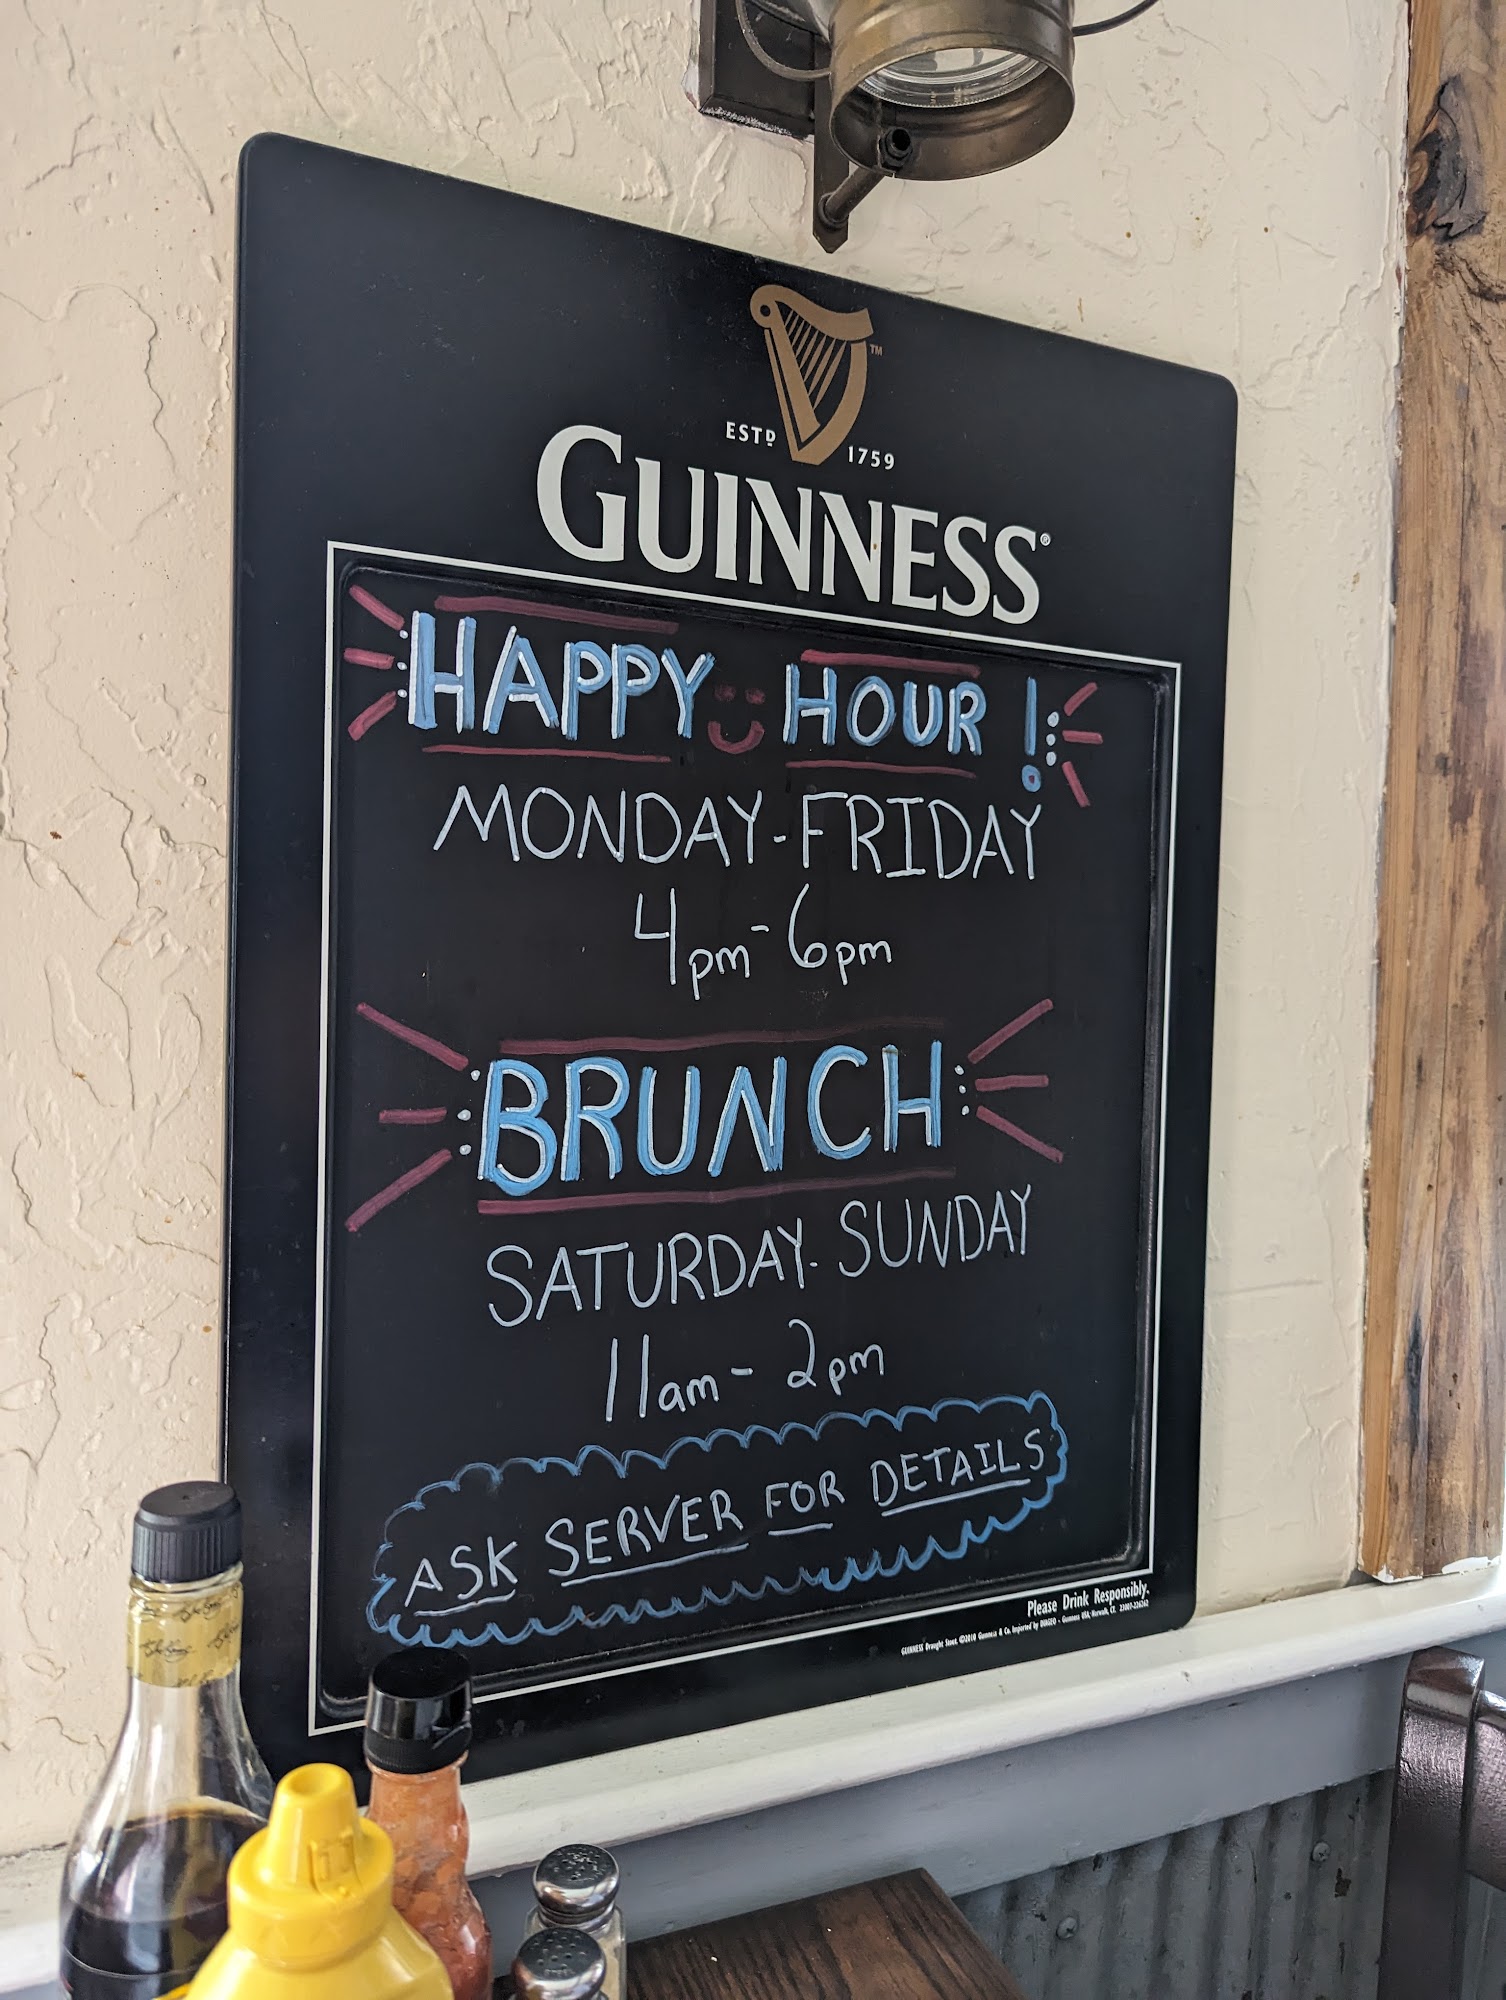 ESTD 1759
GUINNESS®
HAPPY HOUR!
MONDAY-FRIDAY
4pm-6pm
BRUNCH
SATURDAY-SUNDAY
11am-2pm
ASK SERVER FOR DETAILS
Please Drink Responsibly.
GUINNESS Draught Stout. ©2010 Guinness & Co. Imported by DIAGEO - Guinness USA, Norwalk, CT.